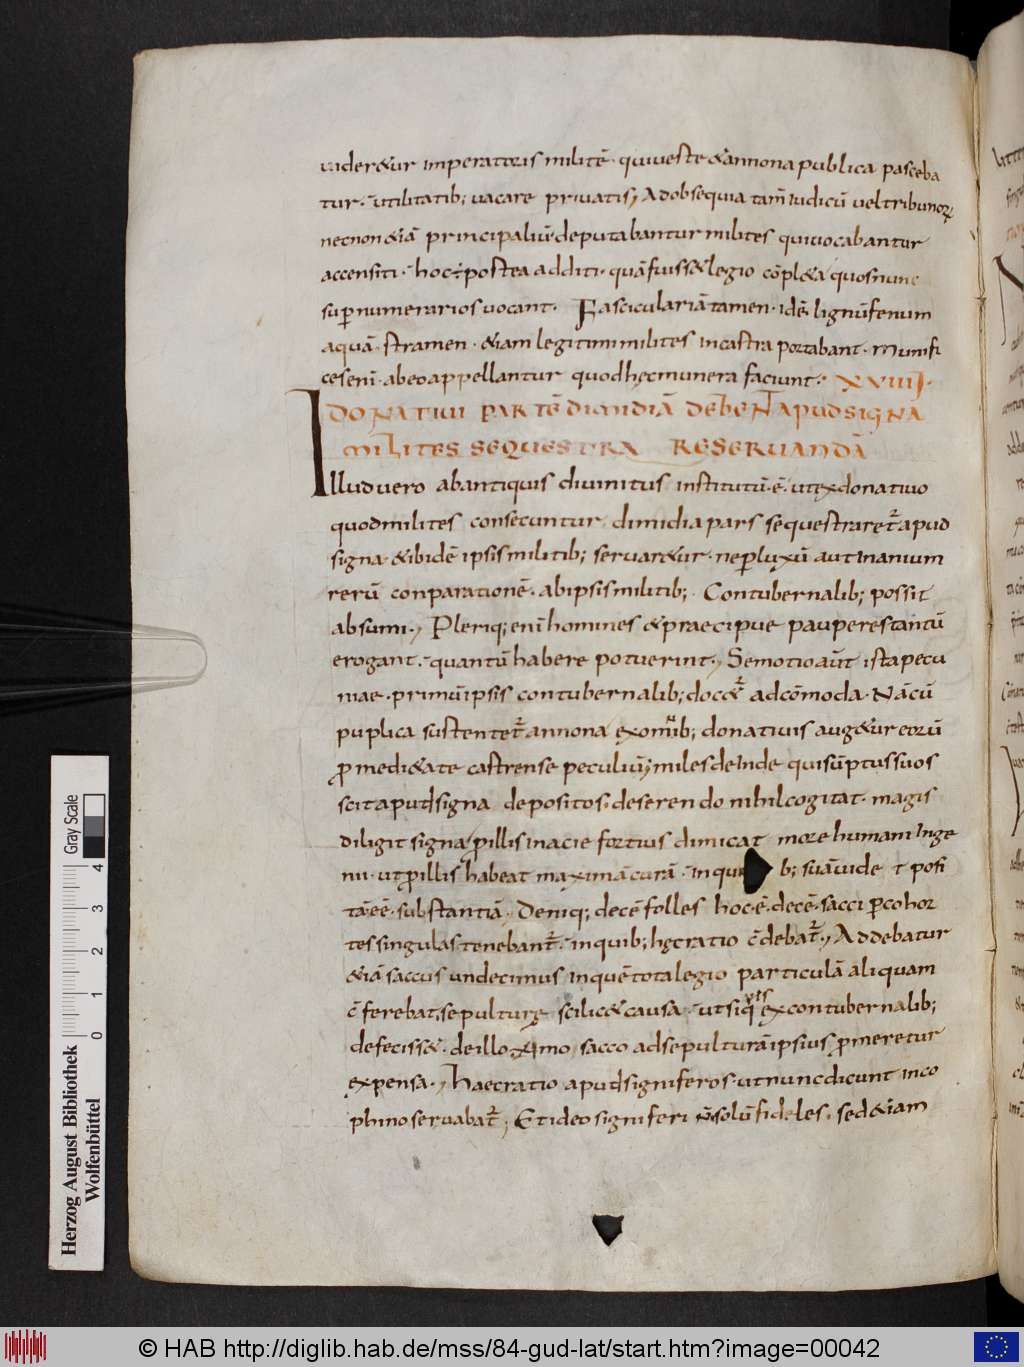 uideretur imperatoris militē· qui ueste & annona publica pasceba
tur· utilitatib; uacare priuatis, Ad obsequia tam̄ iudicū uel tribunoꝝ
necnon &iā principaliū· deputabantur milites qui uocabantur
accensiti· hoc ÷ postea additi· quā fuiss& legio cōpl&a quos nunc
suꝑ numerarios uocant. Fascicularia tamen· idē lignū fenum
aquā· stramen· &iam legitimi milites in castra portabant· munifi
ces enī· ab eo appellantur quod hęc munera faciunt· XVIIII·
DONATIUI PARTĒ DIMIDIĀ DEBENT APUD SIGNA
MILITES SEQUESTRA RESERUANDĀ
Illud uero ab antiquis diuinitus institutū· ē· ut ex donatiuo
quod milites consecuntur dimidia pars sequestraret̄ apud
signa· & ibidē ipsis militib; seruar&ur· ne ꝑ luxū aut inanium
rerū conparationē· ab ipsis militib; Contubernalib; possit
absumi·, Pleriq; enī homines & praecipue pauperes tantū
erogant· quantū habere potuerint·, Semotio aūt ista pecu
niae· primū ipsis contubernalib; doc&̄ adcōmoda· Nā cū
puplica sustentet̄ annona ex om̄ib; donatiuis aug&ur eorū
ꝓ medi&ate castrense peculiū; miles deinde qui sūptus suos
scit aput signa depositos; deserendo nihil cogitat· magis
diligit signa ꝓ illis in acie fortius dimicat more humani inge
nii· ut ꝓ illis habeat maximā curā· in qui b; suā uide t posi
tā eē· substantiā· Deniq; decē folles hoc· ē· decē· sacci ꝑ cohor
tes singulas tenebant̄· in quib; hęc ratio c̄debat̄·, Addebatur
&iā saccus undecimus in quē tota legio particulā aliquam
c̄ferebat, sepulturę scilic& causa· ut siq̄uis ex contubernalib;
defeciss&· de illo xᵢmo sacco ad sepulturā ipsius ꝓmeretur
expensa·, haec ratio aput signiferos· ut nunc dicunt in co
phino seruabat̄; Et ideo signiferi ñ solū fideles, sed &iam
Herzog August Bibliothek
Wolfenbüttel
0 1 2 3 4
Gray Scale
© HAB http://diglib.hab.de/mss/84-gud-lat/start.htm?image=00042